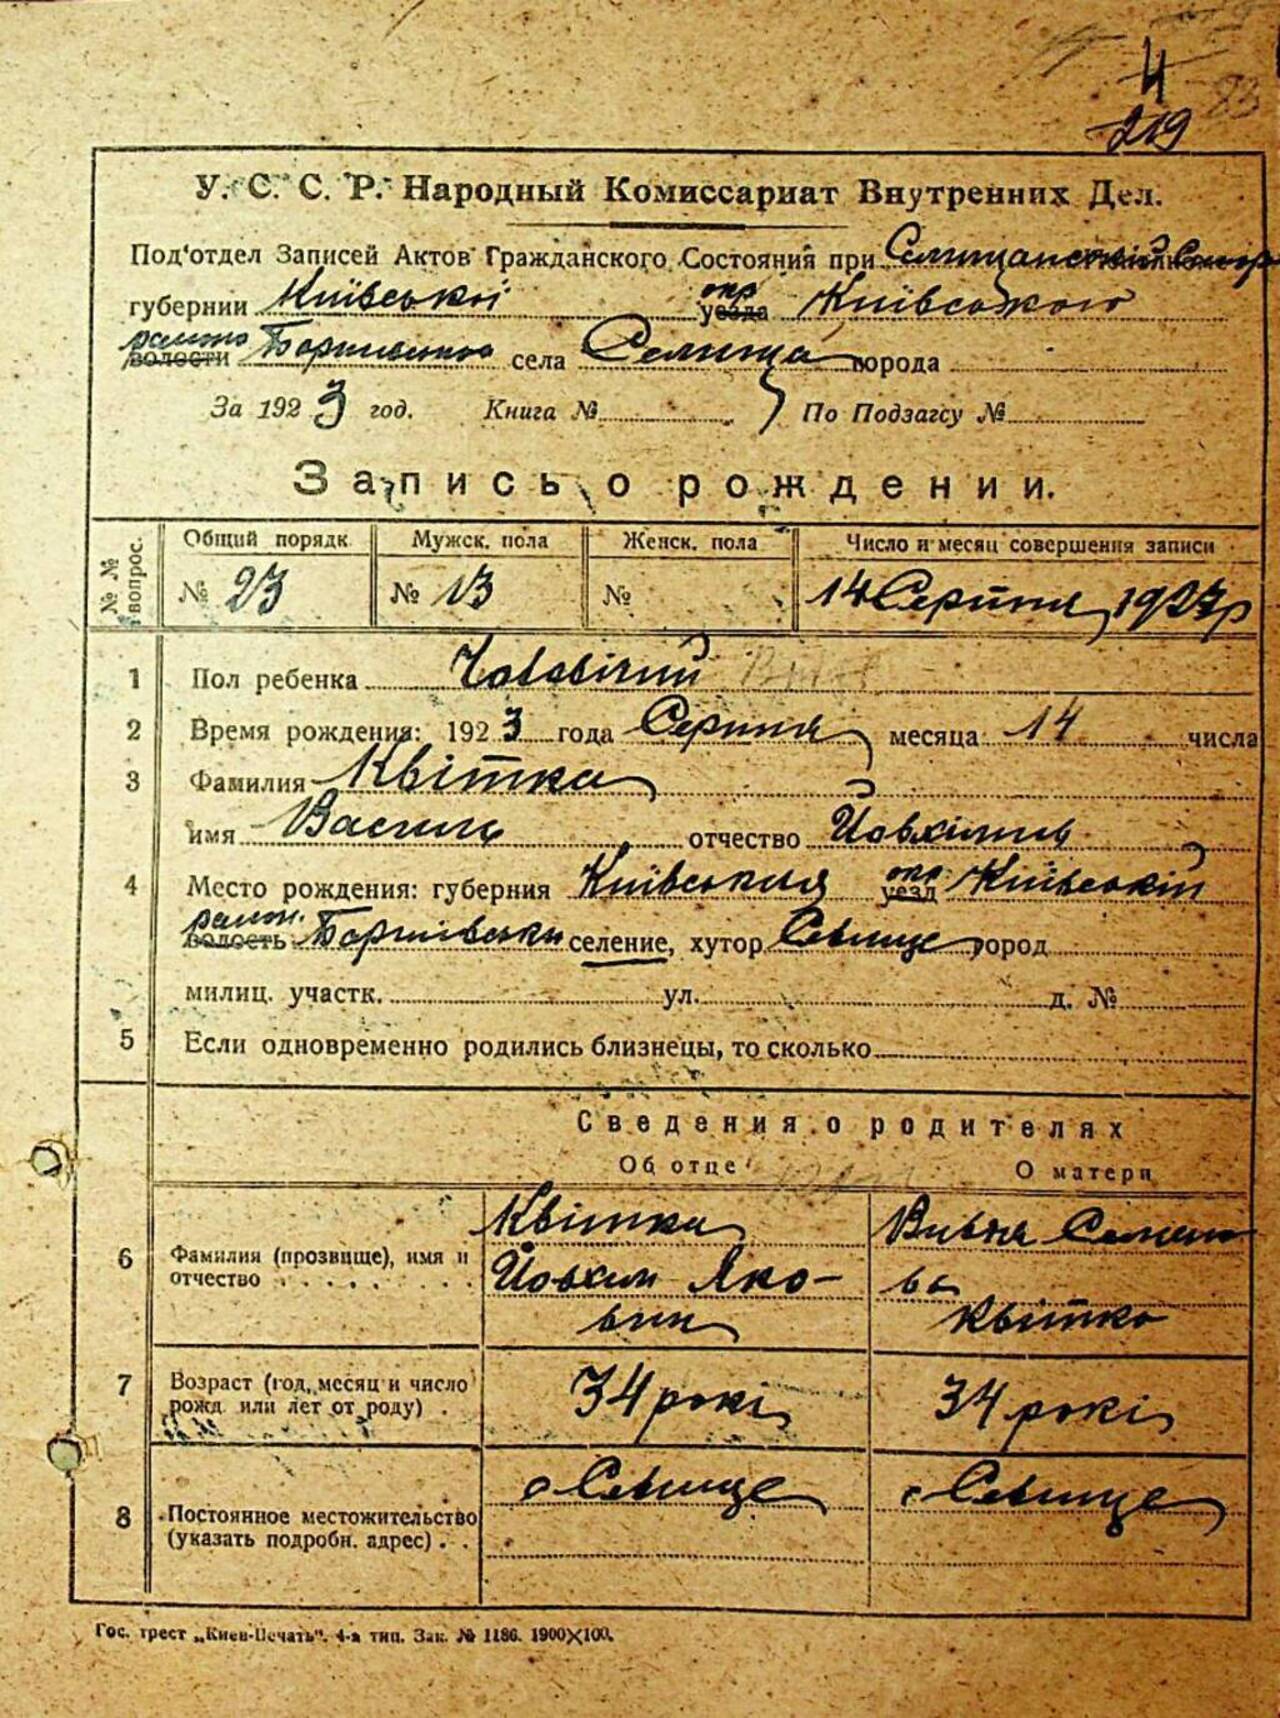 4
219 83
У. С. С. Р. Народный Комиссариат Внутренних Дел.
Под'отдел Записей Актов Гражданского Состояния при Селищанській
губернии Київської окр уезда Київського
волости села Селища города
За 1923 год. Книга № По Подзагсу №
Запись о рождении.
№ № вопрос. Общий порядк Мужск. пола Женск. пола Число и месяц совершения записи
№ 23 № 13 № 14 Серпня 1923 р
1 Пол ребенка Чоловічий
2 Время рождения: 1923 года Серпня месяца 14 числа
3 Фамилия Квітка
имя Василь отчество
4 Место рождения: губерния Київський окр. уезд Київській
волость селение, хутор Селище город
милиц. участк. ул. д. №
5 Если одновременно родились близнецы, то сколько
Сведения о родителях
Об отце О матери
6 Фамилия (прозвище), имя и отчество Квітка Йовхим Яко-
ва Квітко
7 Возраст (год, месяц и число рожд. или лет от роду) 34 рокі 34 рокі
8 Постоянное местожительство (указать подробн. адрес) с Селище с Селище
Гос. трест „Киев-Печать". 4-я тип. Зак. № 1186. 1900×100.